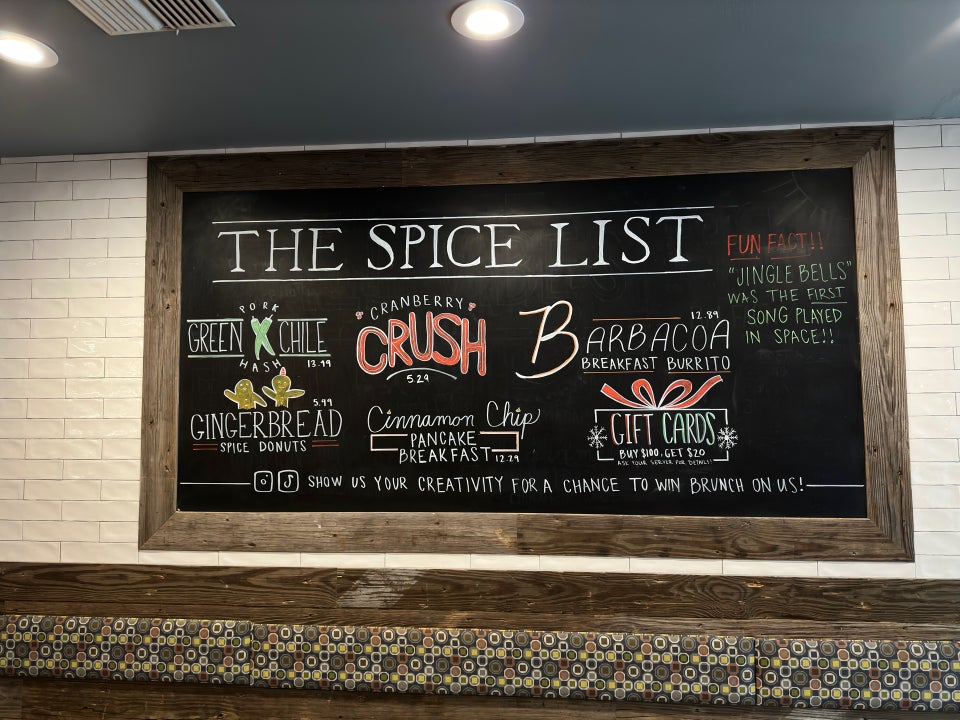 THE SPICE LIST
PORK
GREEN CHILE
HASH 13.49
CRANBERRY
CRUSH
5.29
12.89
BARBACOA
BREAKFAST BURRITO
FUN FACT!!
"JINGLE BELLS"
WAS THE FIRST
SONG PLAYED
IN SPACE!!
5.99
GINGERBREAD
SPICE DONUTS
Cinnamon Chip
PANCAKE
BREAKFAST 12.29
GIFT CARDS
BUY $100, GET $20
ASK YOUR SERVER FOR DETAILS!
SHOW US YOUR CREATIVITY FOR A CHANCE TO WIN BRUNCH ON US!